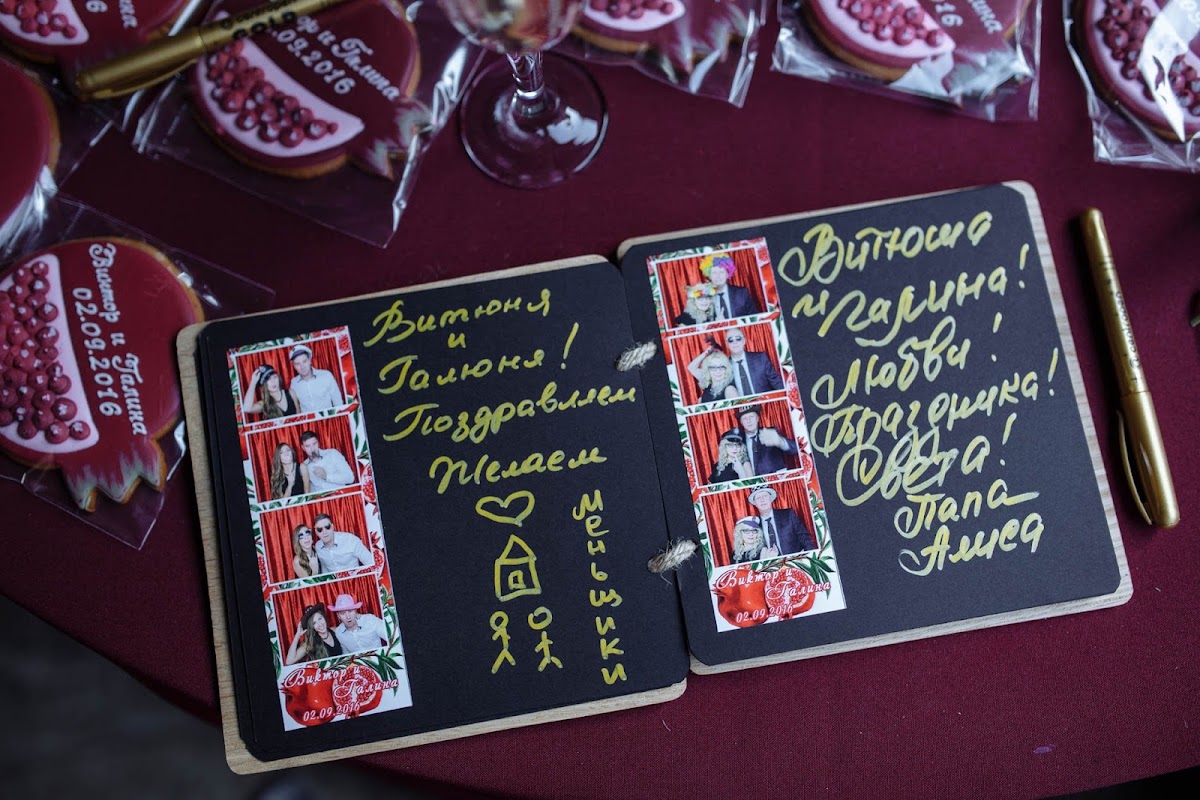 GOLD
и Галина
02.09.2016
Виктор и Галина
02.09.2016
Витюня
и
Галюня!
Поздравляем
Желаем
Меньщики
Виктор и
Галина
02.09.2016
Витюша
и Галина!
Любви!
Праздника!
Света!
Папа
Алиса
Виктор и
Галина
02.09.2016